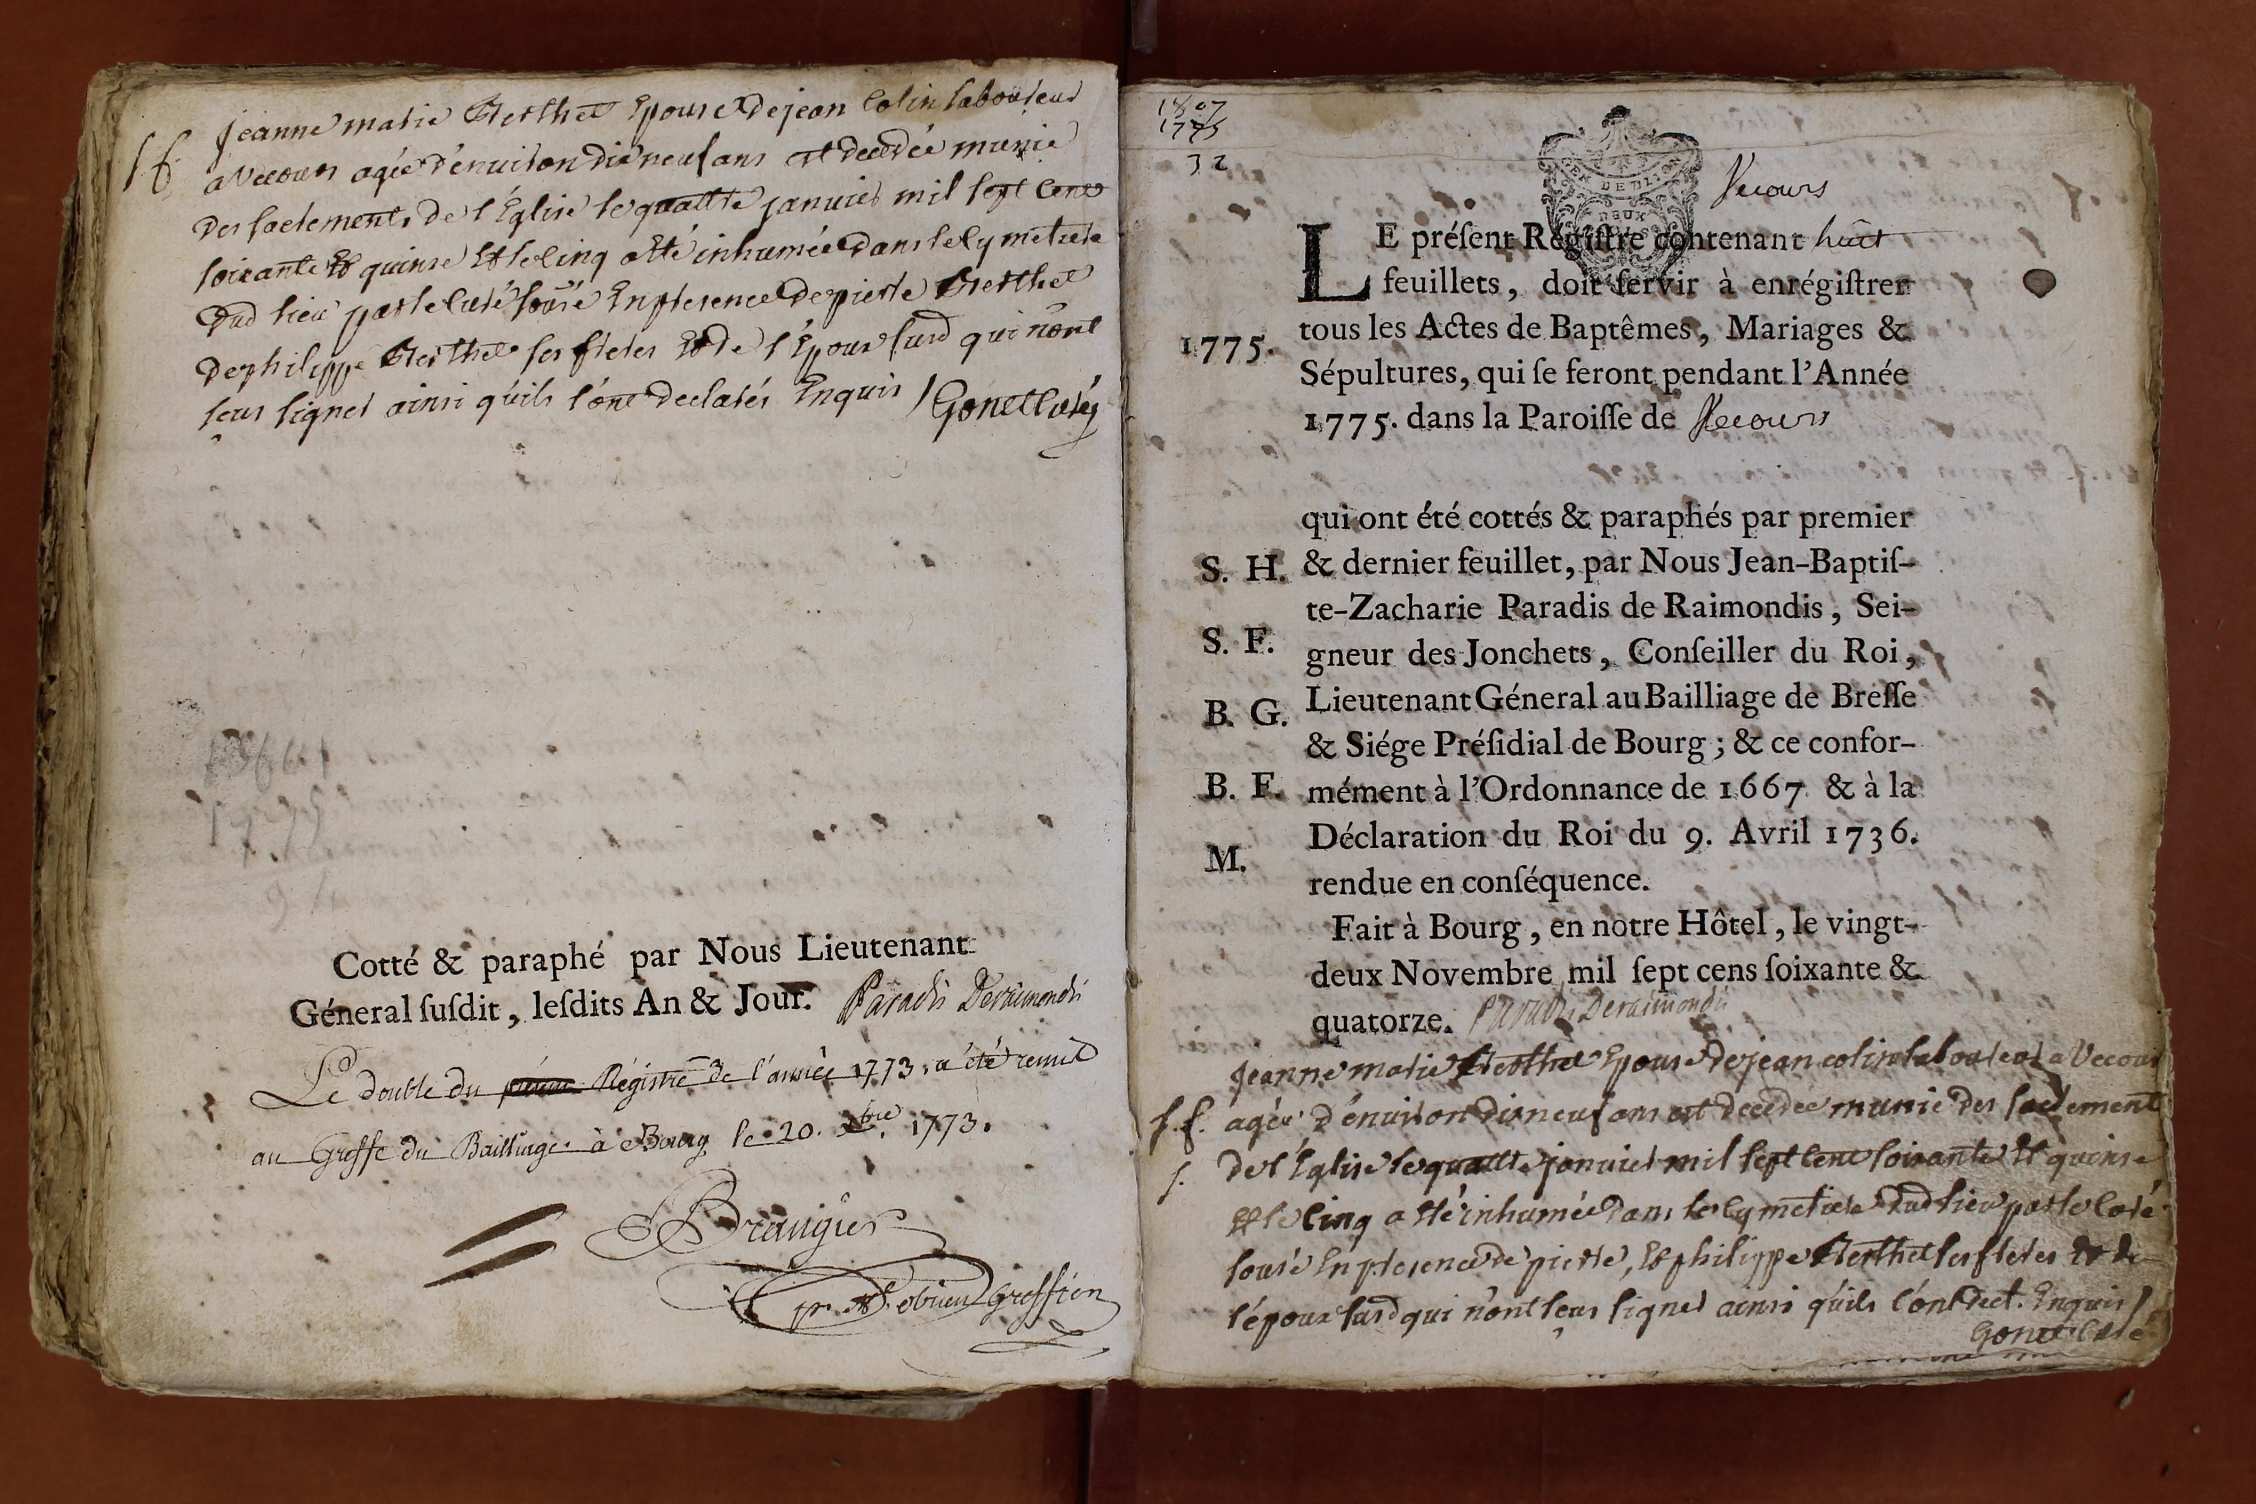 Jeanne marie Berthet Epouse de jean Colin laboureur
S f. a vecours agée d'enuiron dix neuf ans est decedée munie
des sacrements de l'Eglise le quattre januier mil sept cent
soixante et quinse et le cinq a été inhumée dans le cymetiere
dud lieu par le curé sousré En presence de pierre Berthet
de philippe Berthet ses freres et de l'Epoux susd qui n'ont
sceus signer ainsi qu'ils l'ont declarés Enquis / Gonet curé
Cotté & paraphé par Nous Lieutenant
Géneral ſuſdit, leſdits An & Jour. Paradis Deraimondis
Le double du Régistre de l'année 1773, a été remis
au Greffe du Bailliage à Bourg le 20. Xbre 1773.
Greffier
1775
32
Vecours
DEUX
LE préſent Régiſtre contenant huit
feuillets, doit ſervir à enrégiſtrer
tous les Actes de Baptêmes, Mariages &
1775.
Sépultures, qui ſe feront pendant l'Année
1775. dans la Paroiſſe de Vecours
qui ont été cottés & paraphés par premier
S. H. & dernier feuillet, par Nous Jean-Baptiſ-
te-Zacharie Paradis de Raimondis, Sei-
S. F. gneur des Jonchets, Conſeiller du Roi,
B. G. Lieutenant Géneral au Bailliage de Breſſe
& Siége Préſidial de Bourg; & ce confor-
B. F. mément à l'Ordonnance de 1667 & à la
Déclaration du Roi du 9. Avril 1736.
M. rendue en conſéquence.
Fait à Bourg, en notre Hôtel, le vingt-
deux Novembre mil ſept cens ſoixante &
quatorze. Paradis Deraimondis
Jeanne marie Berthet Epouse de jean colin laboureur a Vecours
S. f. agée d'enuiron dix neuf ans est decedée munie des sacrement
1. de l'Eglise le quattre januier mil sept cent soixante et quinse
et le cinq a été inhumée dans le cymetiere dud lieu par le curé
sousré En presence de pierre, et philippe Berthet ses freres et de
l'époux susd qui n'ont sceus signer ainsi qu'ils l'ont decl. Enquis /
Gonet curé